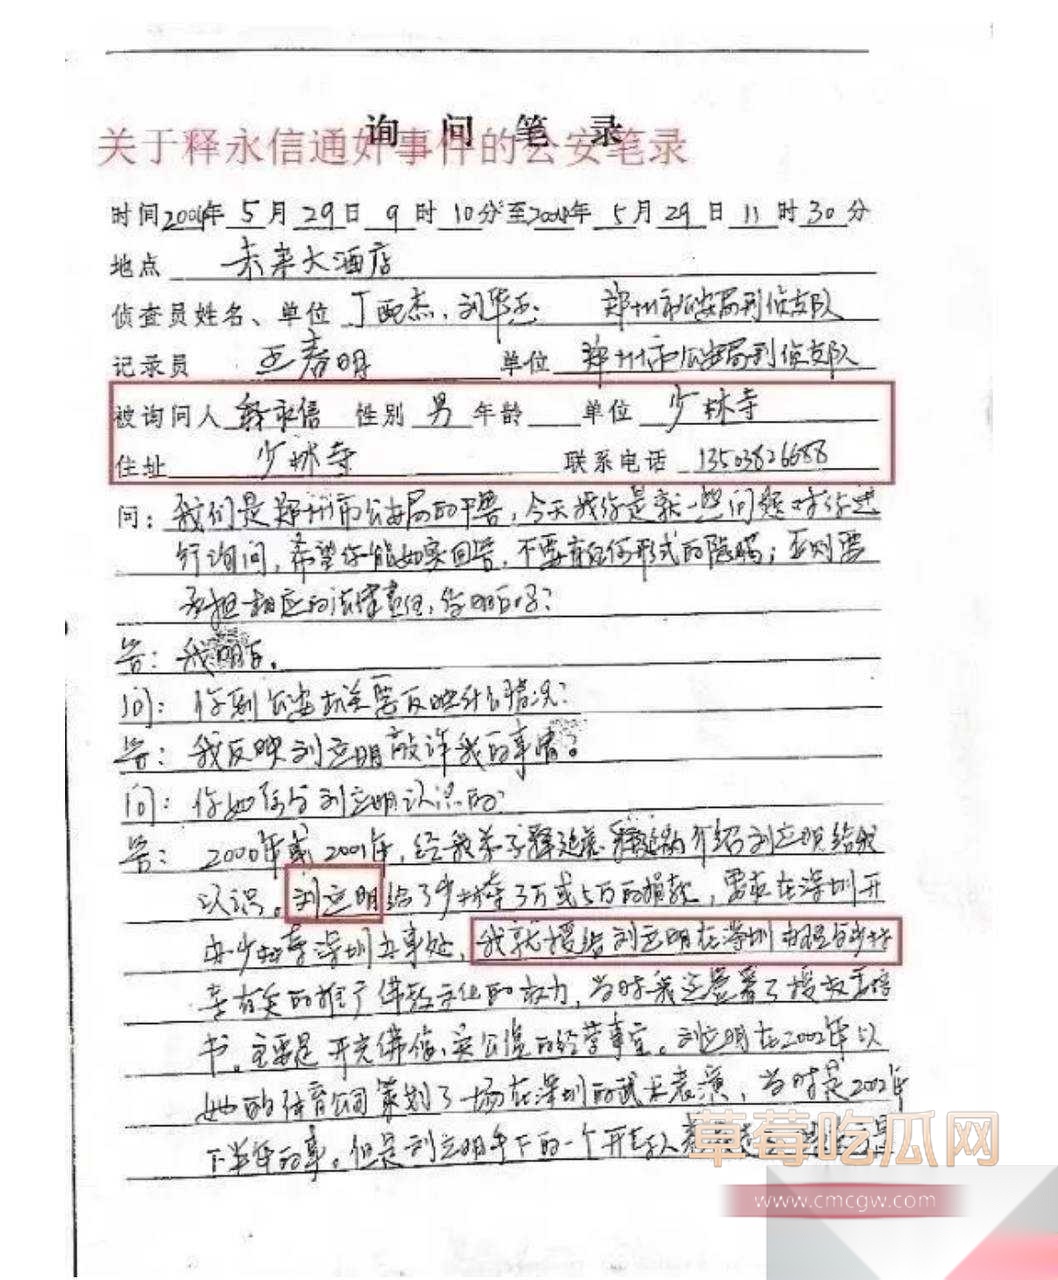 询问笔录
关于释永信通奸事件的公安笔录
时间2004年5月29日9时10分至2004年5月29日11时30分
地点 未来大酒店
侦查员姓名、单位 丁 杰、刘华 郑州市公安局刑侦支队
记录员 王春明 单位 郑州市公安局刑侦支队
被询问人 释永信 性别 男 年龄 单位 少林寺
住址 少林寺 联系电话 13503826688
问：我们是郑州市公安局的干警，今天找你是就一些问题对你进
行询问，希望你能如实回答，不要有任何形式的隐瞒；否则要
承担相应的法律责任，你明白吗？
答：我明白。
问：你到公安机关要反映什么情况？
答：我反映刘立明敲诈我的事情。
问：你如何与刘立明认识的？
答：2000年或2001年，经我弟子释延 释延 介绍刘立明给我
认识。刘立明给了少林寺3万或5万的捐款，要求在深圳开
办少林寺深圳办事处，我就授给刘立明在深圳办理与少林
寺有关的推广佛教文化的权力，当时我还签署了授权委托
书。主要是开光佛像、 的经营事宜。刘立明在2002年以
她的体育公司策划了一场在深圳的武术表演，当时是2002年
下半年的事。但是刘立明手下的一个开车人
草莓吃瓜网
www.cmcgw.com